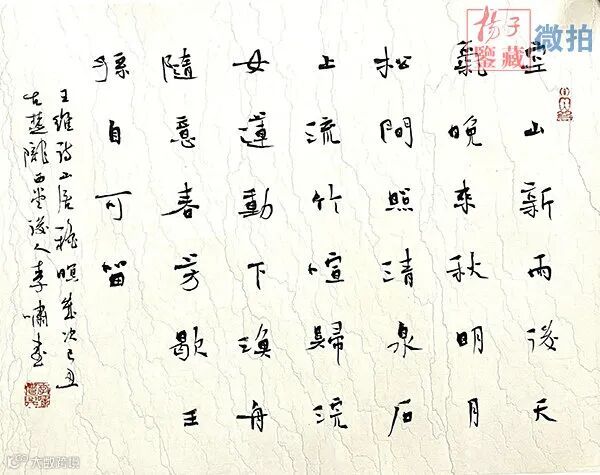 空山新雨後天
氣晚來秋明月
松間照清泉石
上流竹喧歸浣
女蓮動下漁舟
隨意春芳歇王
孫自可留
王維詩山居秋暝歲次己丑
古越隴西堂後人李嘯書
揚子
鑒藏
微拍
大数跨境